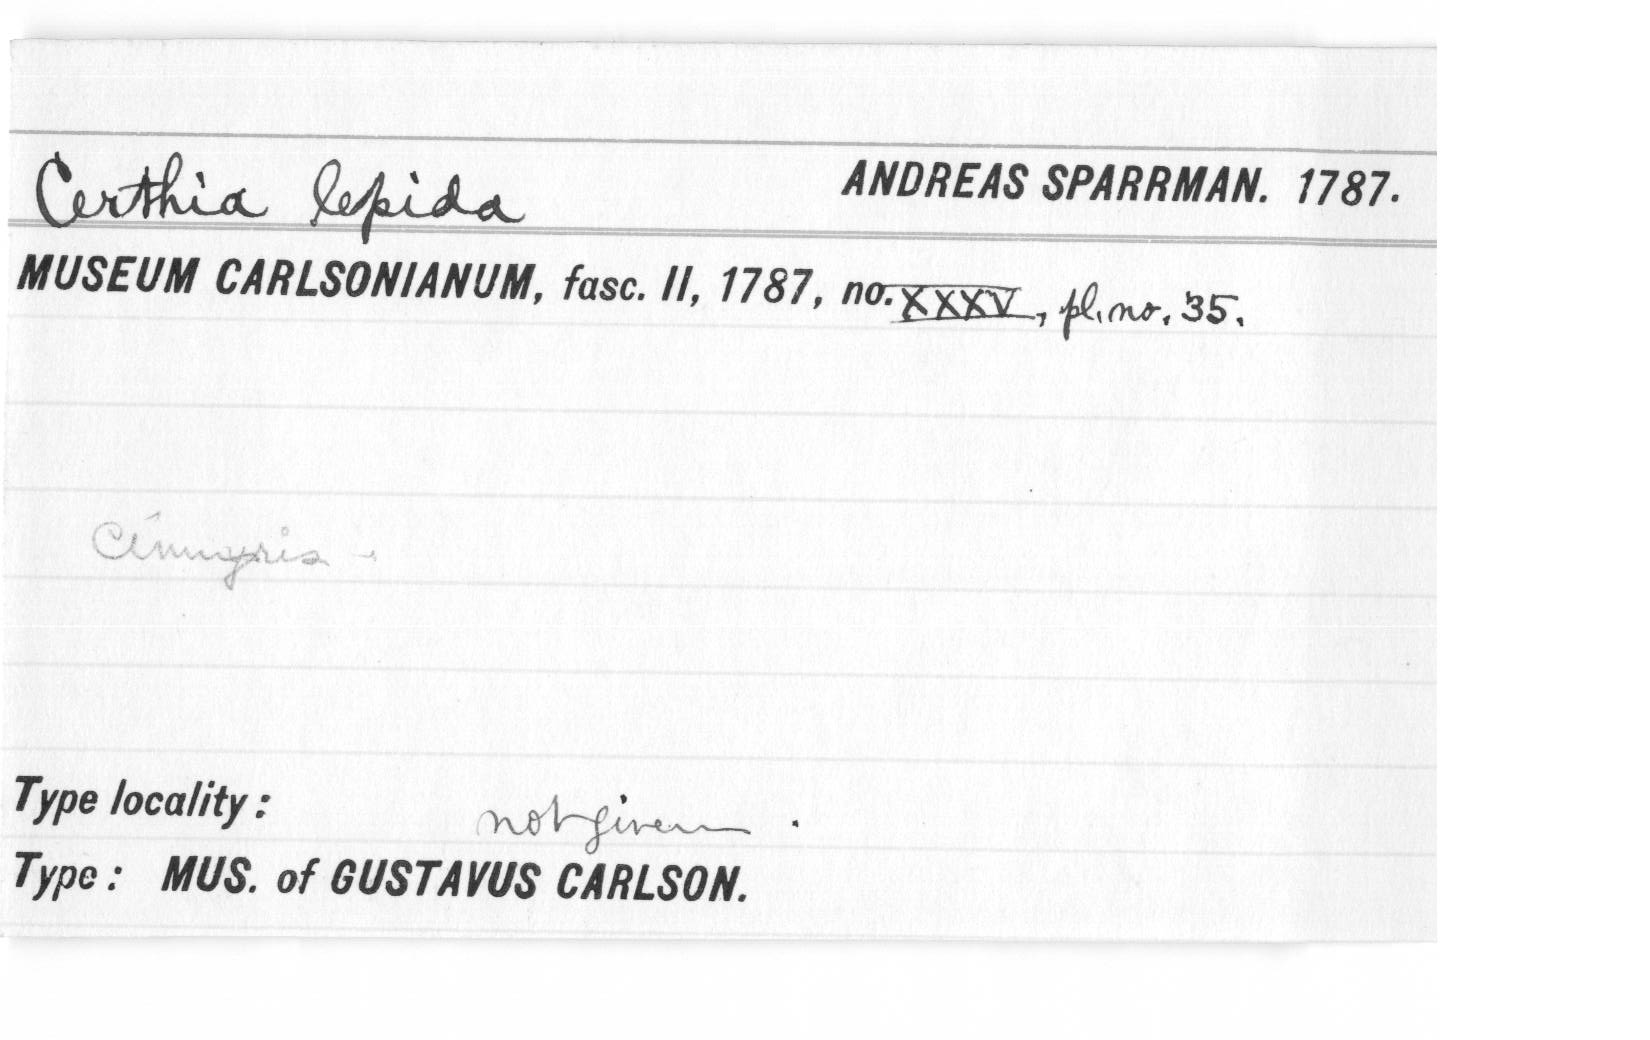 Certhia lepida ANDREAS SPARRMAN. 1787.
MUSEUM CARLSONIANUM, fasc. II, 1787, no. XXXV, pl. no. 35.
Cinnyris -
Type locality: not given.
Type: MUS. of GUSTAVUS CARLSON.